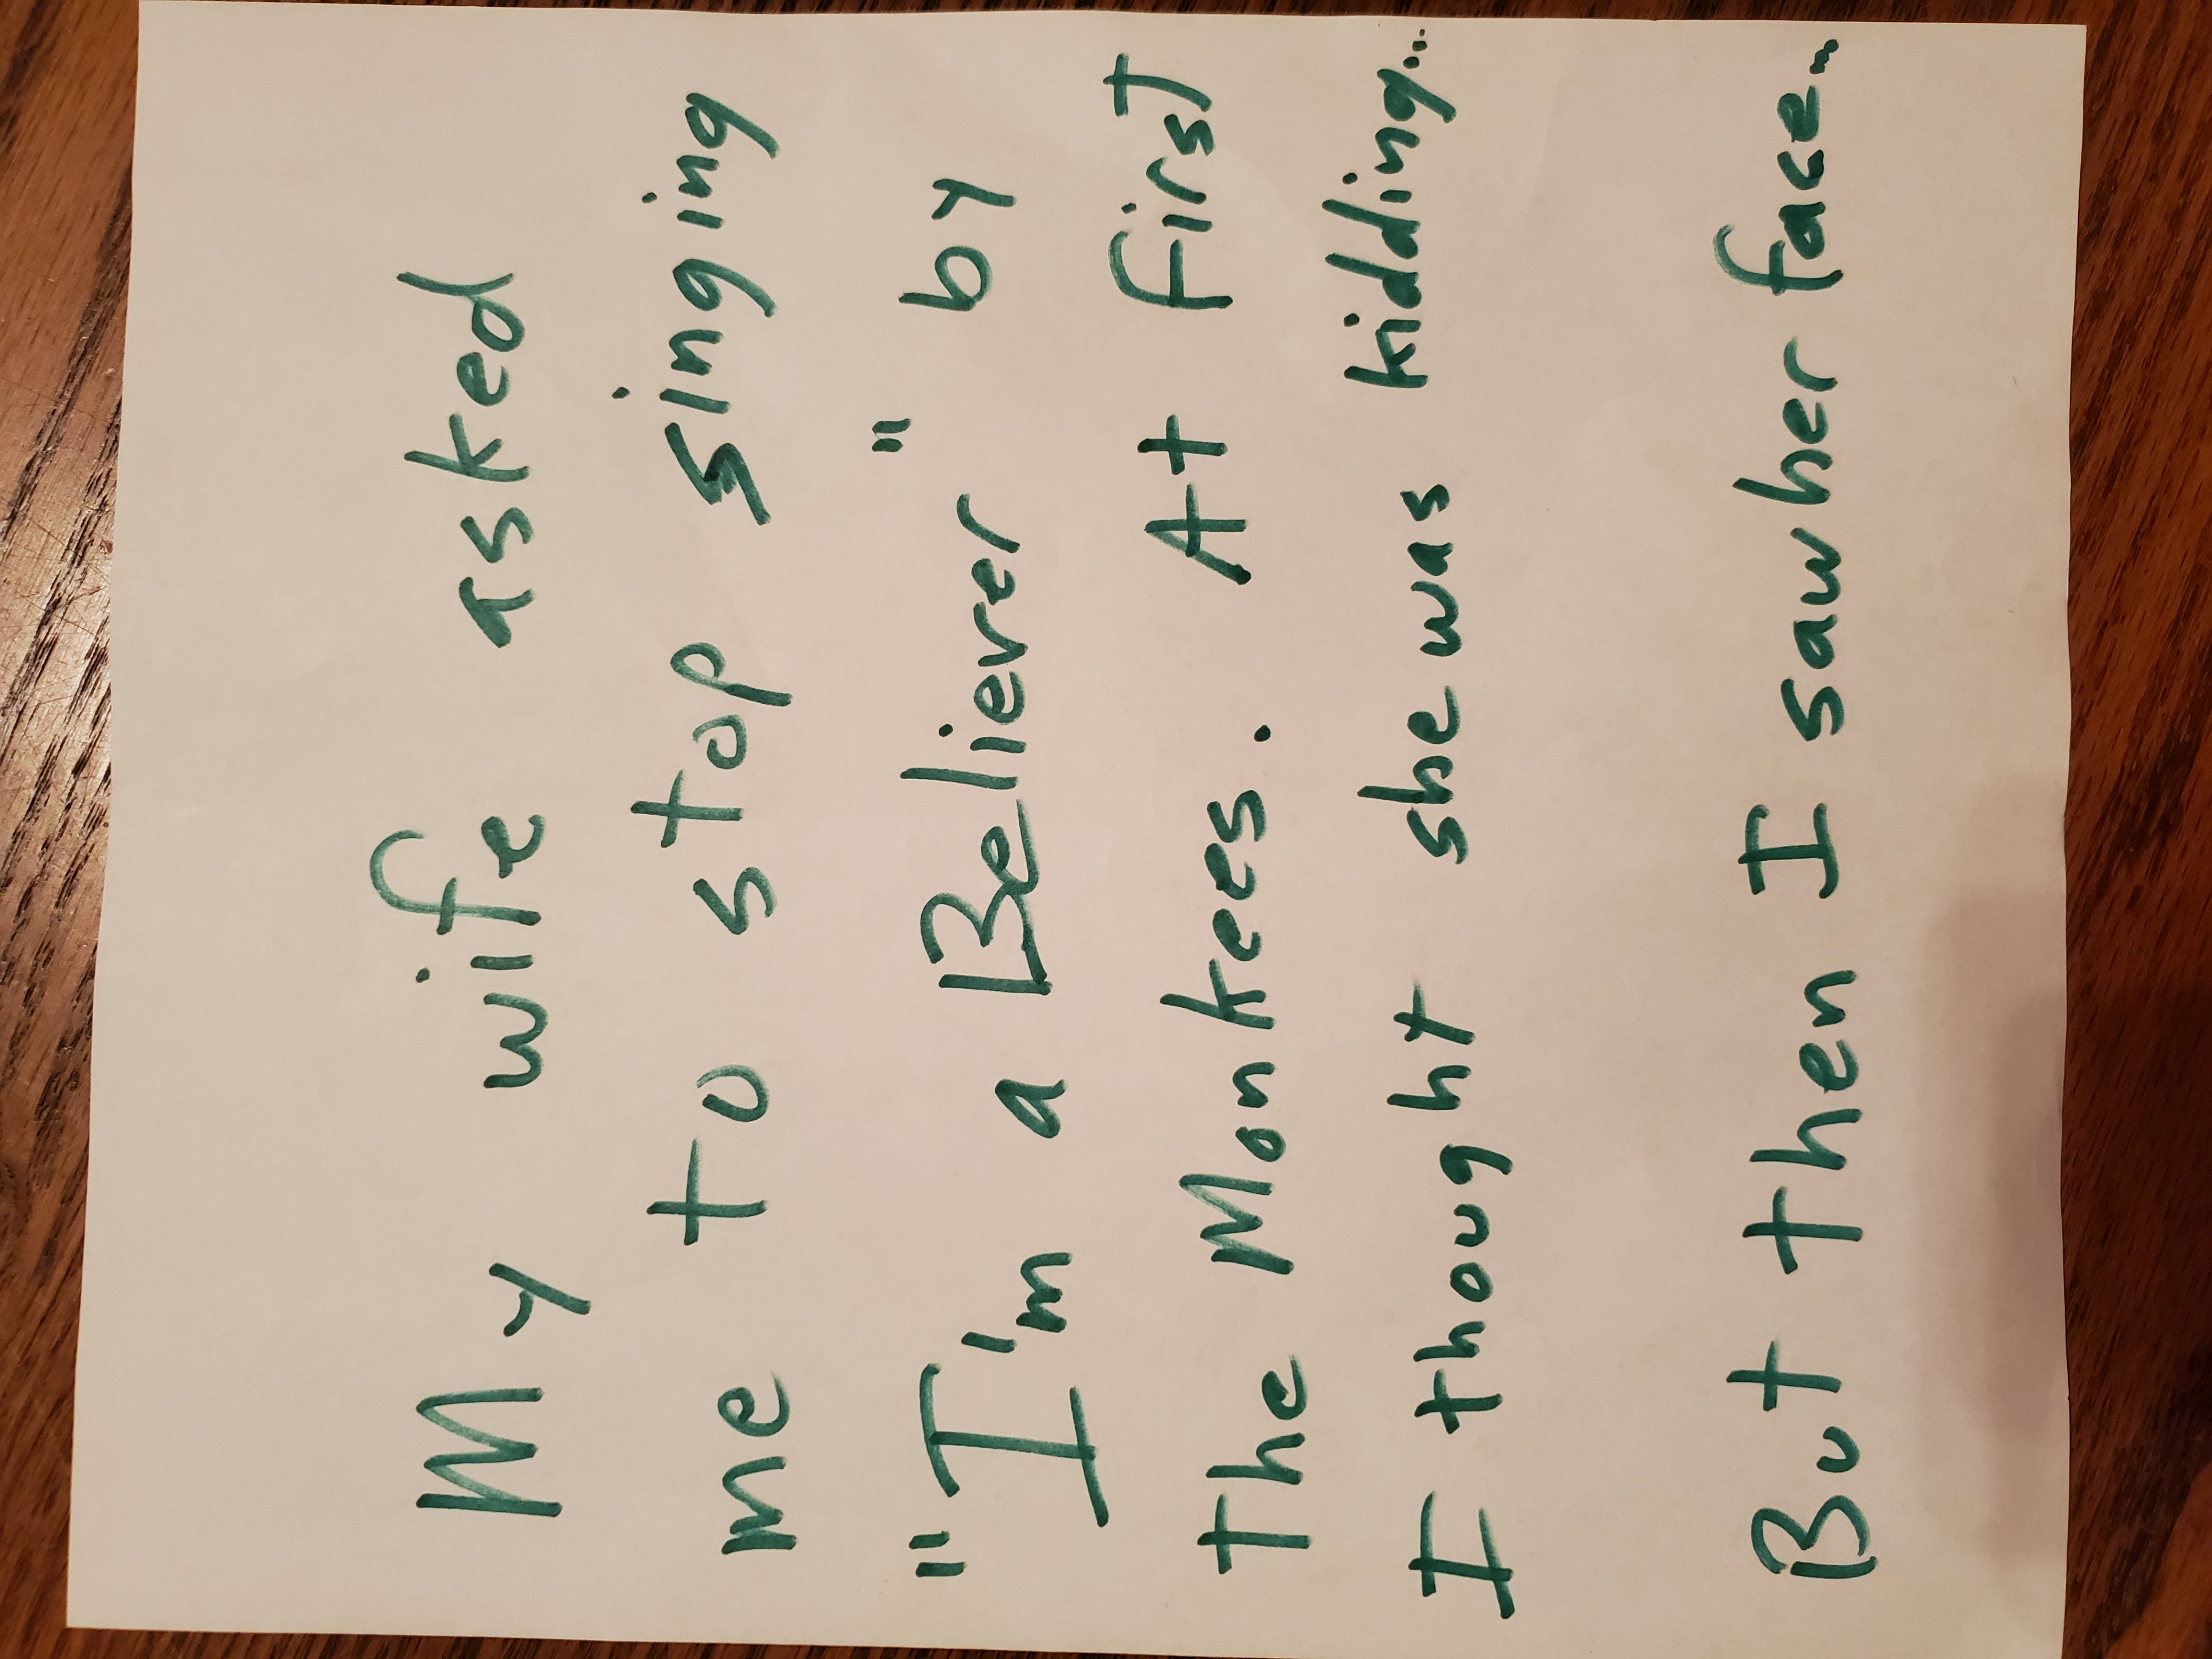 My wife asked
me to stop singing
"I'm a Believer" by
the Monkees. At first
I thought she was kidding...
But then I saw her face...